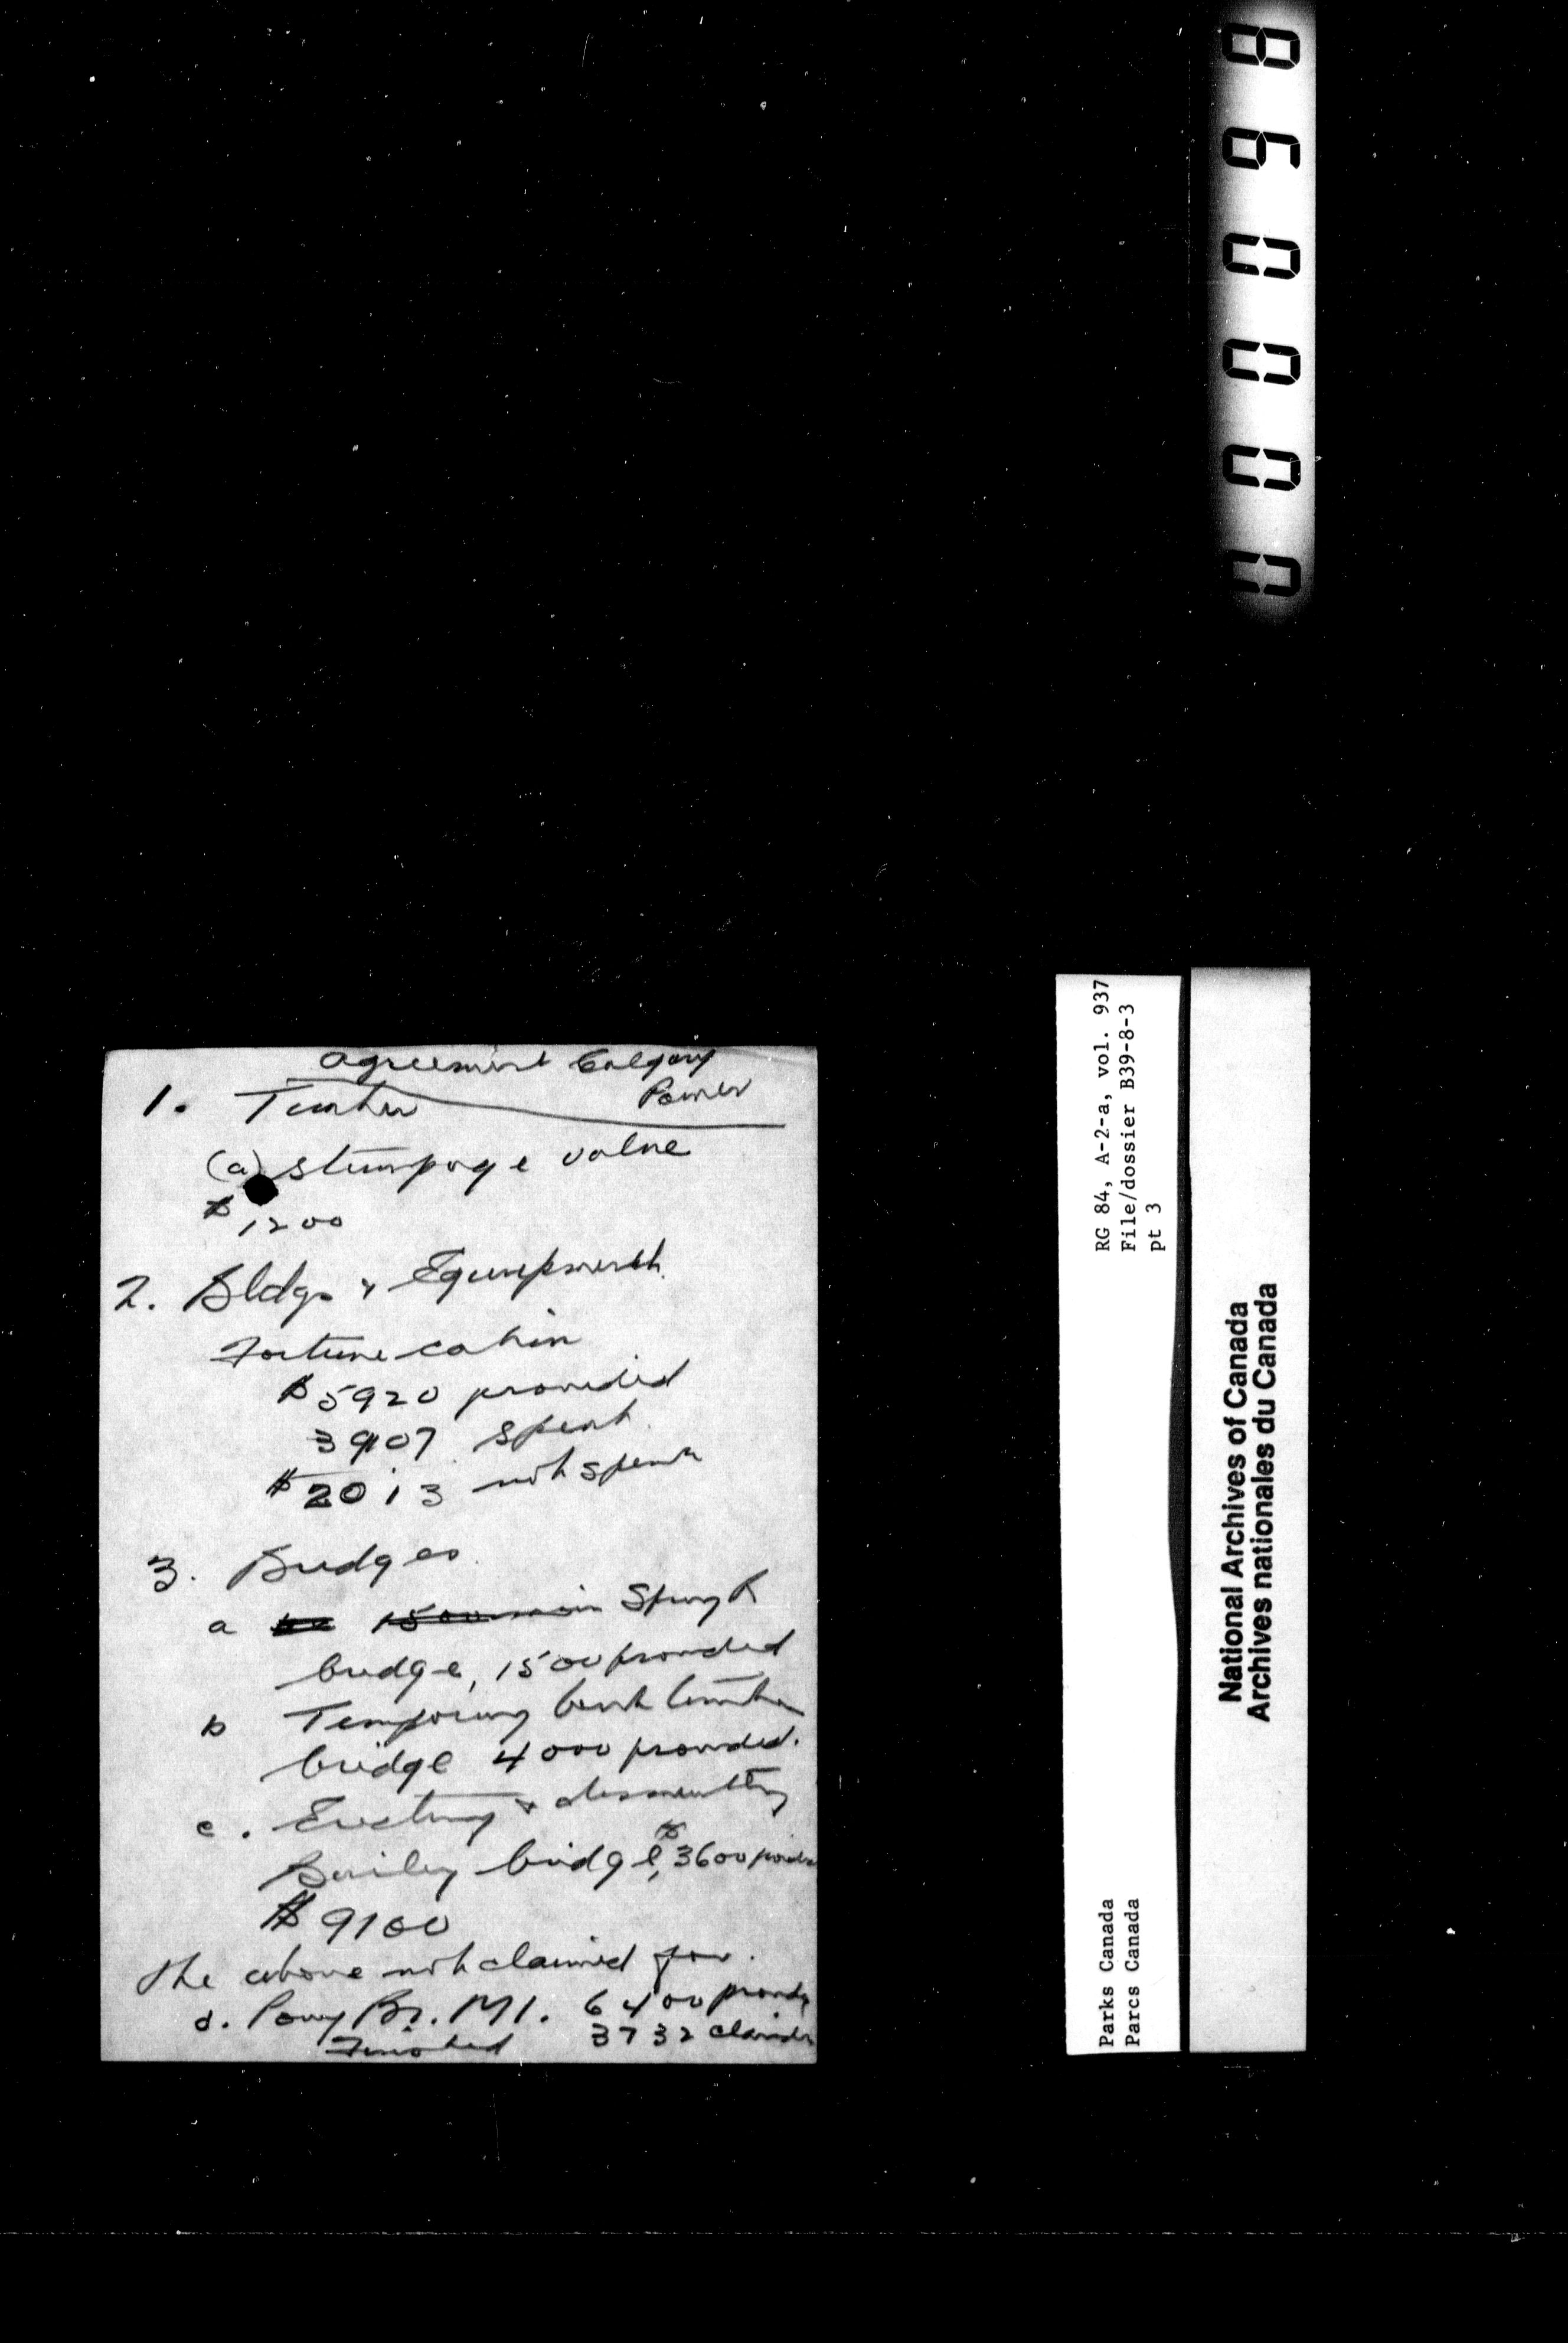 Agreement Calgary
Power
1. Timber
(a) stumpage value
$1200
2. Bldgs & Equipment
Fortune cabin
$5920 provided
3907 spent
$2013 not spent
3. Bridges
a 1500 Spray R
bridge, 1500 provided
b Temporary bent timber
bridge 4000 provided.
c. Erecting & dismantling
Bailey bridge, $3600
$9100
The above not claimed for.
d. Pony Br. M1. 6400
Finished 3732
RG 84, A-2-a, vol. 937
File/dossier B39-8-3
pt 3
Parks Canada
Parcs Canada
National Archives of Canada
Archives nationales du Canada
000098